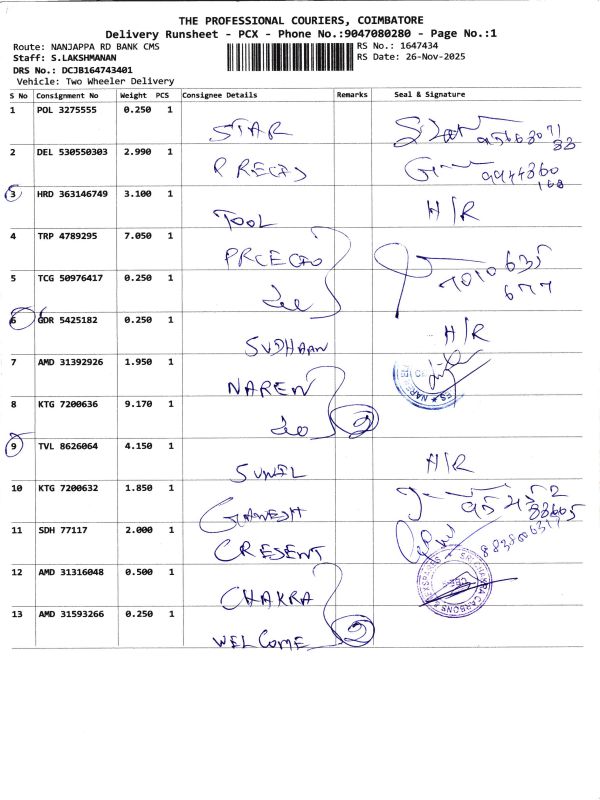 THE PROFESSIONAL COURIERS, COIMBATORE
Delivery Runsheet - PCX - Phone No.:9047080280 - Page No.:1
Route: NANJAPPA RD BANK CMS RS No.: 1647434
Staff: S.LAKSHMANAN RS Date: 26-Nov-2025
DRS No.: DCJB164743401
Vehicle: Two Wheeler Delivery
S No Consignment No Weight PCS Consignee Details Remarks Seal & Signature
1 POL 3275555 0.250 1 STAR
2 DEL 530550303 2.990 1
3 HRD 363146749 3.100 1 TOOL H/R
4 TRP 4789295 7.050 1
5 TCG 50976417 0.250 1 7010 635
677
6 GDR 5425182 0.250 1 SUDHAAN H/R
7 AMD 31392926 1.950 1 NAREN
8 KTG 7200636 9.170 1 2
9 TVL 8626064 4.150 1 SUNIL H/R
10 KTG 7200632 1.850 1 GANESH
11 SDH 77117 2.000 1 CRESENT
12 AMD 31316048 0.500 1 CHAKRA
13 AMD 31593266 0.250 1 WELCOME 2